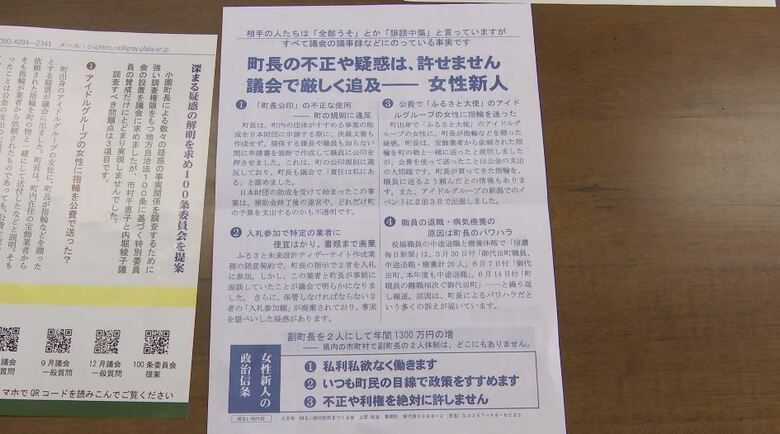 相手の人たちは「全部うそ」とか「誹謗中傷」と言っていますが
すべて議会の議事録などにのっている事実です
町長の不正や疑惑は、許せません
議会で厳しく追及―― 女性新人
❶ 「町長公印」の不正な使用
――町の規則に違反
町長は、町内の団体がすすめる事業の助
成を日本財団に申請する際に、決裁文書も
作成せず、関係する課長や職員も知らない
間に申請書を放置で作成して職員に公印を
押させました。これは、町の公印規則に違
反しており、町長も議会で「責任は私にあ
る」と認めました。
日本財団の助成を受けて始まったこの事
業は、補助金終了後の運営や、どれだけ町
の予算を支出するのかも不透明です。
❷ 入札参加で特定の業者に
便宜はかり、書類まで廃棄
ふるさと未来設計ティザーサイト作成業
務の随意契約で、町長の指示で2者を入札
に参加。しかし、この業者と町長が事前に
面談していたことが議会で明らかになりま
した。さらに、保管しなければならない2
者の「入札参加願」が廃棄されており、事実
を隠ぺいした疑惑があります。
❸ 公費で「ふるさと大使」のアイド
ルグループの女性に指輪を送った
町出身で「ふるさと大使」のアイドルグル
ープの女性に、町長が指輪などを贈った
疑惑。町長は、宝飾業者から依頼された指
輪を町の物と一緒に送ったと説明しました
が、公費を使って送ったことは公金の支出
の大問題です。町長が買ってきた指輪を、
職員に送るよう頼んだとの情報もありま
す。また、アイドルグループの新潟でのイベ
ントに2泊3日で出張しました。
❹ 職員の退職・病気療養の
原因は町長のパワハラ
役場職員の中途退職と療養休暇で「信濃
毎日新聞」は、3月30日付「御代田町職員、
中途退職・療養計20人」、6月7日付「御代
田町、本年度も中途退職」、6月14日付「町
職員の離職相次ぐ御代田町」……と繰り返
し報道。原因は、町長によるパワハラだ
という多くの訴えが届いています。
副町長を2人にして年間1300万円の増
――県内の市町村で副町長の2人体制は、どこにもありません。
女性新人の
政治信条
❶ 私利私欲なく働きます
❷ いつも町民の目線で政策をすすめます
❸ 不正や利権を絶対に許しません
090-4094-2341
深まる疑惑の解明を求め100条委員会を提案
小園町長による数々の疑惑の事実関係を調査するために
強い調査権限をもつ地方自治法100条に基づく特別委員
会の設置を議会に求めましたが、市村千恵子と内堀綾子議
員の賛成だけにとどまり実現しませんでした。
調査すべき問題点は3項目です。
❶ アイドルグループの女性に指輪を公費で送った?
町出身のアイドルグループの女性に、町長が指輪などを贈った
9月議会
一般質問
12月議会
一般質問
100条委員会
提案
マホでQRコードを読みこんでご覧ください